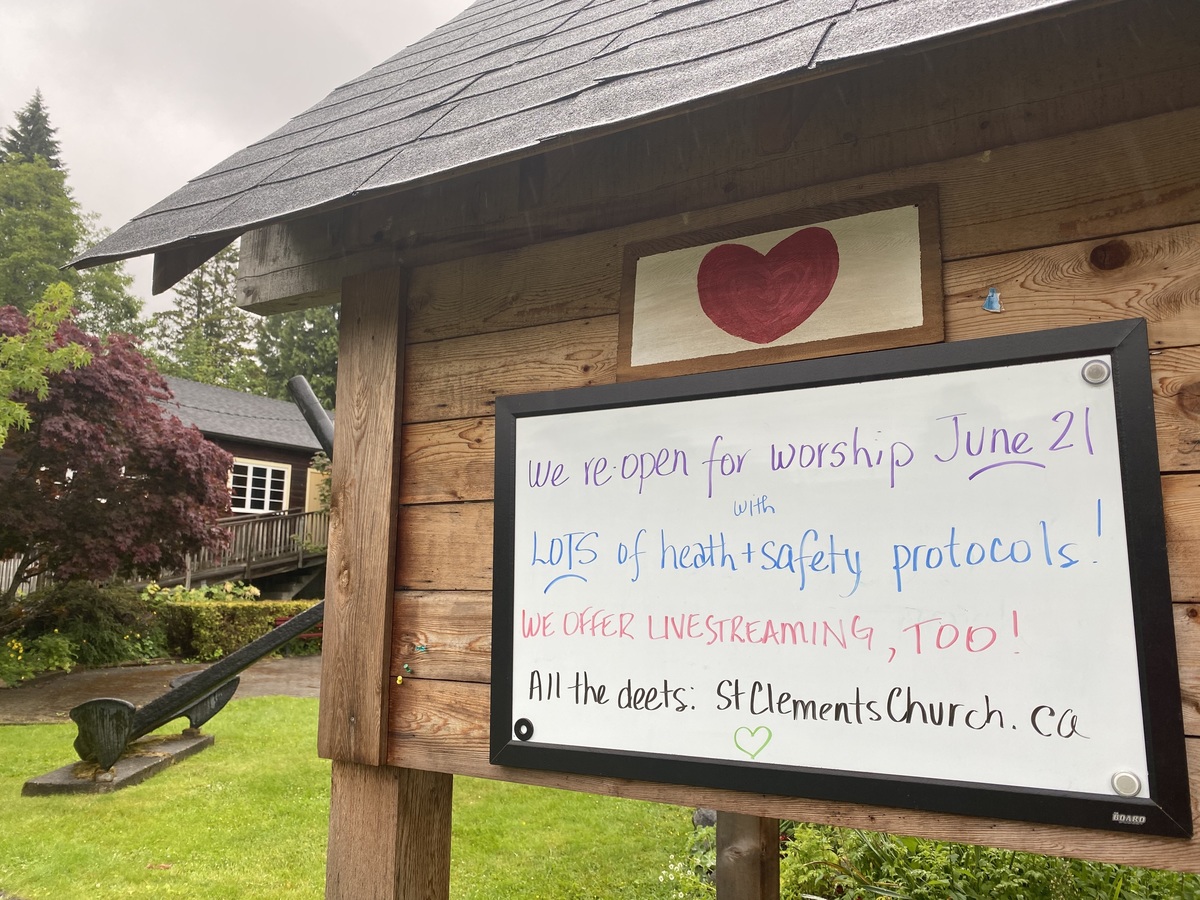 We re-open for worship June 21
with
LOTS of heath + safety protocols!
WE OFFER LIVESTREAMING, TOO!
All the deets: StClementsChurch.ca
BOARD